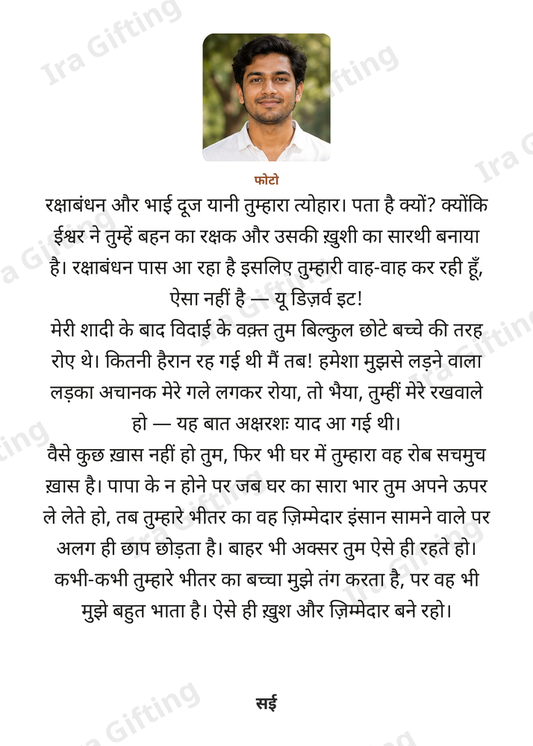 Ira Gifting
फोटो
रक्षाबंधन और भाई दूज यानी तुम्हारा त्योहार। पता है क्यों? क्योंकि
ईश्वर ने तुम्हें बहन का रक्षक और उसकी ख़ुशी का सारथी बनाया
है। रक्षाबंधन पास आ रहा है इसलिए तुम्हारी वाह-वाह कर रही हूँ,
ऐसा नहीं है — यू डिज़र्व इट!
मेरी शादी के बाद विदाई के वक़्त तुम बिल्कुल छोटे बच्चे की तरह
रोए थे। कितनी हैरान रह गई थी मैं तब! हमेशा मुझसे लड़ने वाला
लड़का अचानक मेरे गले लगकर रोया, तो भैया, तुम्हीं मेरे रखवाले
हो — यह बात अक्षरशः याद आ गई थी।
वैसे कुछ ख़ास नहीं हो तुम, फिर भी घर में तुम्हारा वह रोब सचमुच
ख़ास है। पापा के न होने पर जब घर का सारा भार तुम अपने ऊपर
ले लेते हो, तब तुम्हारे भीतर का वह ज़िम्मेदार इंसान सामने वाले पर
अलग ही छाप छोड़ता है। बाहर भी अक्सर तुम ऐसे ही रहते हो।
कभी-कभी तुम्हारे भीतर का बच्चा मुझे तंग करता है, पर वह भी
मुझे बहुत भाता है। ऐसे ही ख़ुश और ज़िम्मेदार बने रहो।
सई